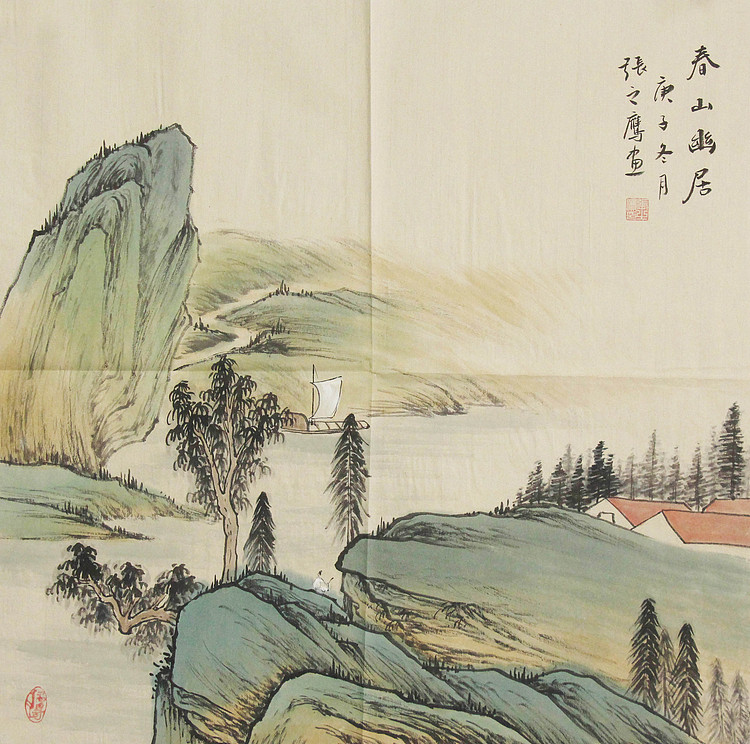 春山幽居
庚子冬月
張之鷹画